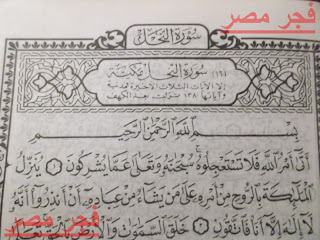 فجر مصر
سُورَةُ النَّحْلِ
(١٦) سُورَةُ النَّحْلِ مَكِّيَّةٌ
إلا الآيات الثلاث الأخيرة فمدنية
وآياتها ١٢٨ نزلت بعد الكهف
بِسْمِ اللَّهِ الرَّحْمَٰنِ الرَّحِيمِ
أَتَىٰٓ أَمْرُ ٱللَّهِ فَلَا تَسْتَعْجِلُوهُ سُبْحَٰنَهُۥ وَتَعَٰلَىٰ عَمَّا يُشْرِكُونَ ١ يُنَزِّلُ
ٱلْمَلَٰٓئِكَةَ بِٱلرُّوحِ مِنْ أَمْرِهِۦ عَلَىٰ مَن يَشَآءُ مِنْ عِبَادِهِۦٓ أَنْ أَنذِرُوٓا۟ أَنَّهُۥ
لَآ إِلَٰهَ إِلَّآ أَنَا۠ فَٱتَّقُونِ ٢ خَلَقَ ٱلسَّمَٰوَٰتِ وَٱلْأَرْضَ
فجر مصر